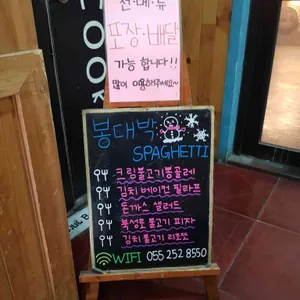 전·메·뉴
포장·배달
가능 합니다!!
많이 이용해주세요~
봉대박
SPAGHETTI
크림불고기뽕골레
김치 베이컨 필라프
돈까스 샐러드
북성로 불고기 피자
김치 불고기 리조또
WIFI 055 252 8550